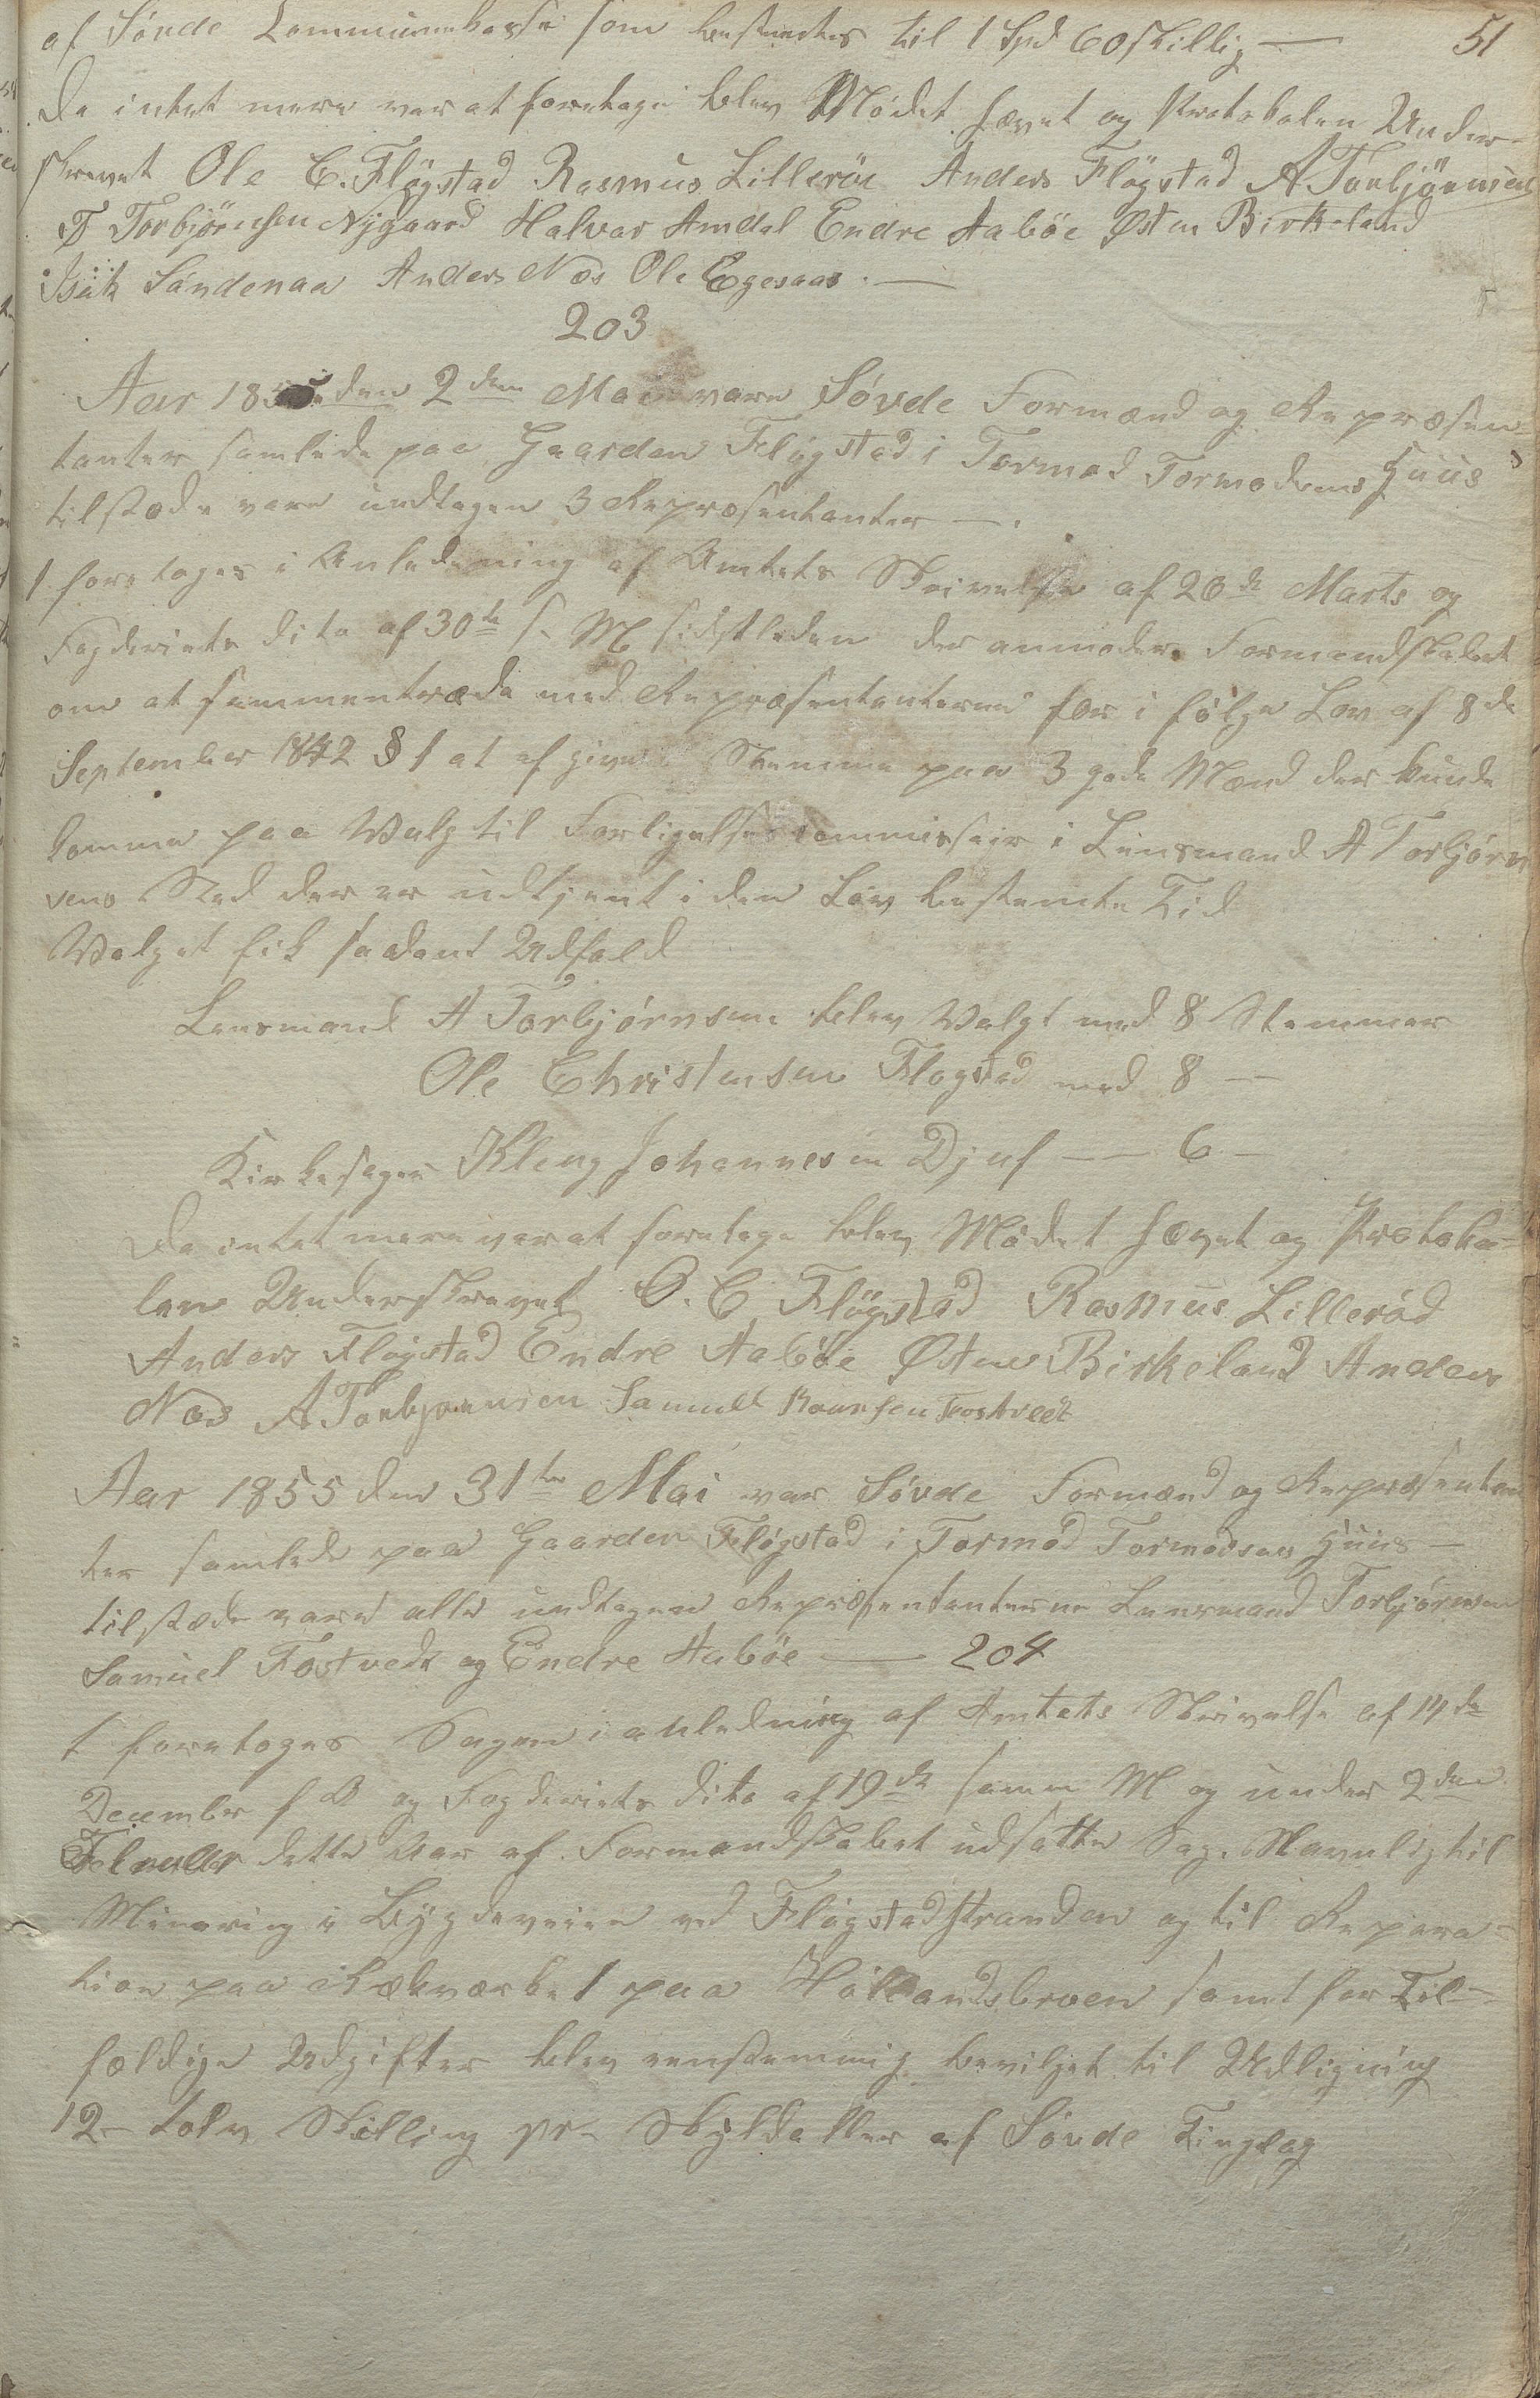 af Søvde Communekasse som bestemtes til 1 Spd 60 skillig — 51
Da intet mere var at foretage blev Mødet hævet og Protokolen Under-
skrevet Ole C. Flögstad Rasmus Lilleröe Anders Flögstad A Torbjörnsen
T Torbjörnsen Nygaard Halvar Amdal Endre Aaböe Østen Birkeland
Isak Sandenaa Anders Næs Ole Egesaas. —
203
Aar 1855 den 2den Mai vare Søvde Formænd og Repræsen-
tanter samlede paa Gaarden Fløgstad i Tormod Tormodsens Huus
tilstæde vare undtagen 3 Repræsentanter —.
1 foretoges i Anledning af Amtets Skrivelse af 26de Marts og
Fogderiets dito af 30te s. M sidstleden der anmoder Formandskabet
om at sammentræde med Repræsentanterne for i følge Lov af 8de
September 1842 § 1 at afgive Stemme paa 3 gode Mænd der kunde
komme paa Valg til Forligelsescommissair i Lensmand A Torbjørn
sens Sted der er udtjent i den Lov bestemte Tid
Valget fik saadant Udfald
Lensmand A Torbjørnsen blev Valgt med 8 Stemmer
Ole Christensen Fløgstad med 8 —
Kirkesanger Kleng Johannesen Djuf — 6 —
Da intet mere var at foretage blev Mødet hævet og Protoko-
len Underskrevet O. C Flögstad Rasmus Lilleröd
Anders Flögstad Endre Aaböe Østen Birkeland Anders
Næs A Torbjørnsen Samuel Fostveet
Aar 1855 den 31te Mai var Søvde Formænd og Repræsentan
ter samlede paa Gaarden Fløgstad i Tormod Tormodsens Huus —
tilstæde vare alle undtagen Repræsentanterne Lensmand Torbjørnsen
Samuel Fostvedt og Endre Aabøe — 204
1 foretoges Sagen i anledning af Amtets Skrivelse af 14de
December f A og Fogderiets dito af 19de samme M og under 2den
dette Aar af Formandskabet udsatte Sag. Navnlig til
Minering i Bygdeveien ved Fløgstadstranden og til Repera-
tion paa Rækværket paa Høllandsbroen samt for Til-
fældige Udgifter blev eenstemmig bevilget til Udligning
12 - tolv Skilling pr. Skylddaller af Søvde Tinglag